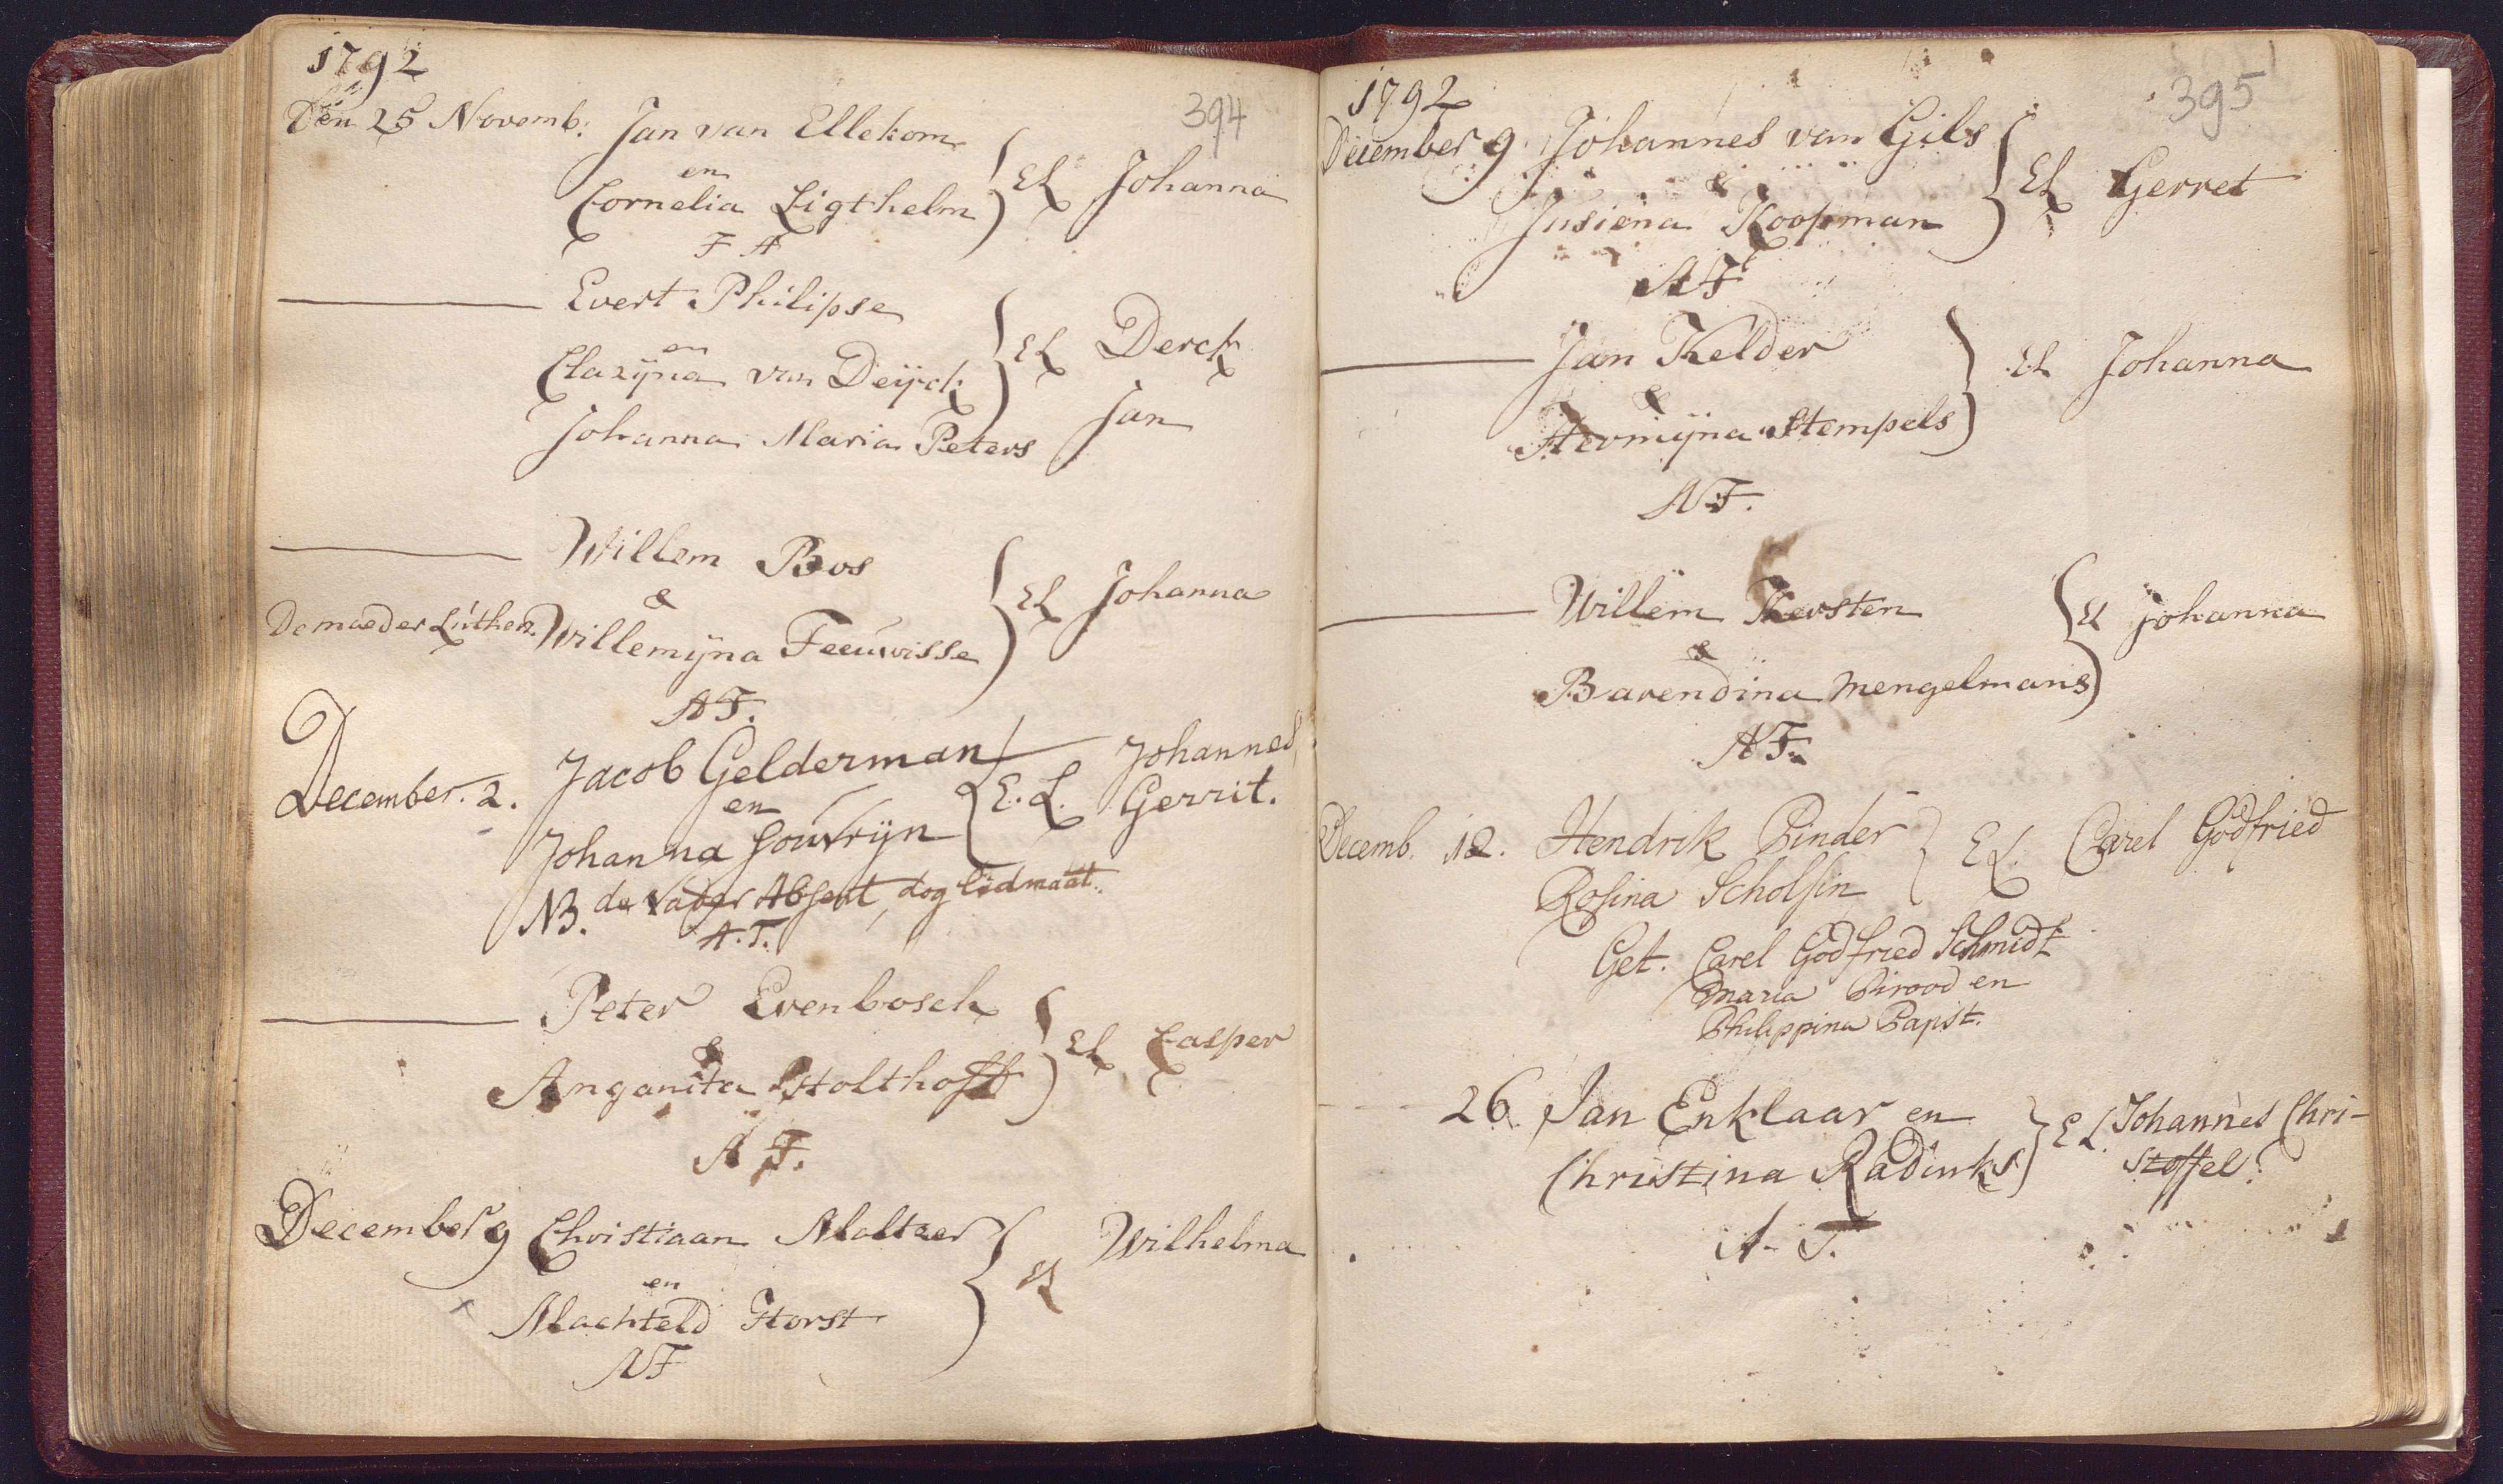 1792
394
Den 25 Novemb: Jan van Ellekom
en
Cornelia Ligthelm } EL Johanna
F A
Evert Philipse
en
Clazijna van Deijck } EL Derck
Johanna Maria Peters Jan
Willem Bos
&
De moeder Luther. Willemijna Feeuwisse } EL Johanna
AF.
December. 2. Jacob Gelderman
en
Johanna Gouvrijn } E. L. Johannes
Gerrit.
NB. de Vader Absent, dog lidmaat.
A. F.
Peter Evenbosch
&
Anganita Holthoff } EL Casper
A F.
December 9 Christiaan Maltzer
en
Machteld Horst } EL Wilhelma
AF
1792
395
December 9 Johannes van Gils
&
Jusiena Koopman } EL Gerret
AF
Jan Kelder
&
Hermijna Stempels } EL Johanna
AF.
Willem Kersten
&
Barendina Mengelmans } EL Johanna
AF.
Decemb. 12. Hendrik Binder
Rosina Scholsin } EL. Carel Godfried
Get. Carel Godfried Schmidt
Maria Pirood en
Philippina Papst.
26 Jan Enklaar en
Christina Radinks } EL. Johannes Chri-
stoffel.
A. F.